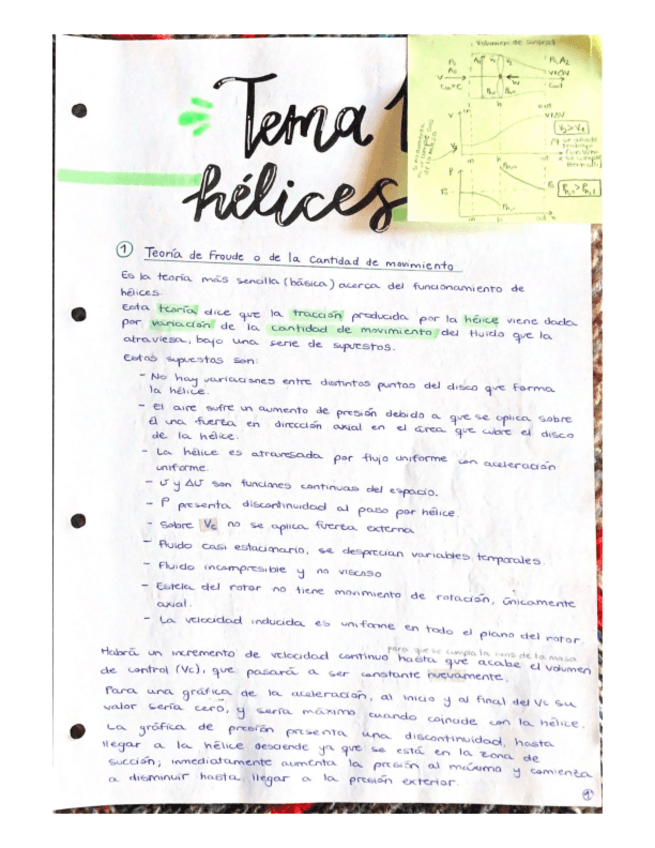 Volumen de control
Tema 1
hélices
1 Teoría de Froude o de la cantidad de movimiento
Es la teoría más sencilla (básica) acerca del funcionamiento de
hélices.
Esta teoría dice que la tracción producida por la hélice viene dada
por variación de la cantidad de movimiento del fluido que la
atraviesa, bajo una serie de supuestos.
Estos supuestos son:
- No hay variaciones entre distintos puntos del disco que forma
la hélice.
- El aire sufre un aumento de presión debido a que se aplica sobre
él una fuerza en dirección axial en el área que cubre el disco
de la hélice.
- La hélice es atravesada por flujo uniforme con aceleración
uniforme.
- v y Δv son funciones continuas del espacio.
- P presenta discontinuidad al paso por hélice.
- Sobre Vc no se aplica fuerza externa
- Fluido casi estacionario, se desprecian variables temporales.
- Fluido incompresible y no viscoso
- Estela del rotor no tiene movimiento de rotación, únicamente
axial.
- La velocidad inducida es uniforme en todo el plano del rotor.
para que se cumpla la cons de la masa
Habrá un incremento de velocidad continuo hasta que acabe el volumen
de control (Vc), que pasará a ser constante nuevamente.
Para una gráfica de la aceleración, al inicio y al final del Vc su
valor sería cero, y sería máximo cuando coincide con la hélice.
La gráfica de presión presenta una discontinuidad, hasta
llegar a la hélice desciende ya que se está en la zona de
succión; inmediatamente aumenta la presión al máximo y comienza
a disminuir hasta llegar a la presión exterior.
1